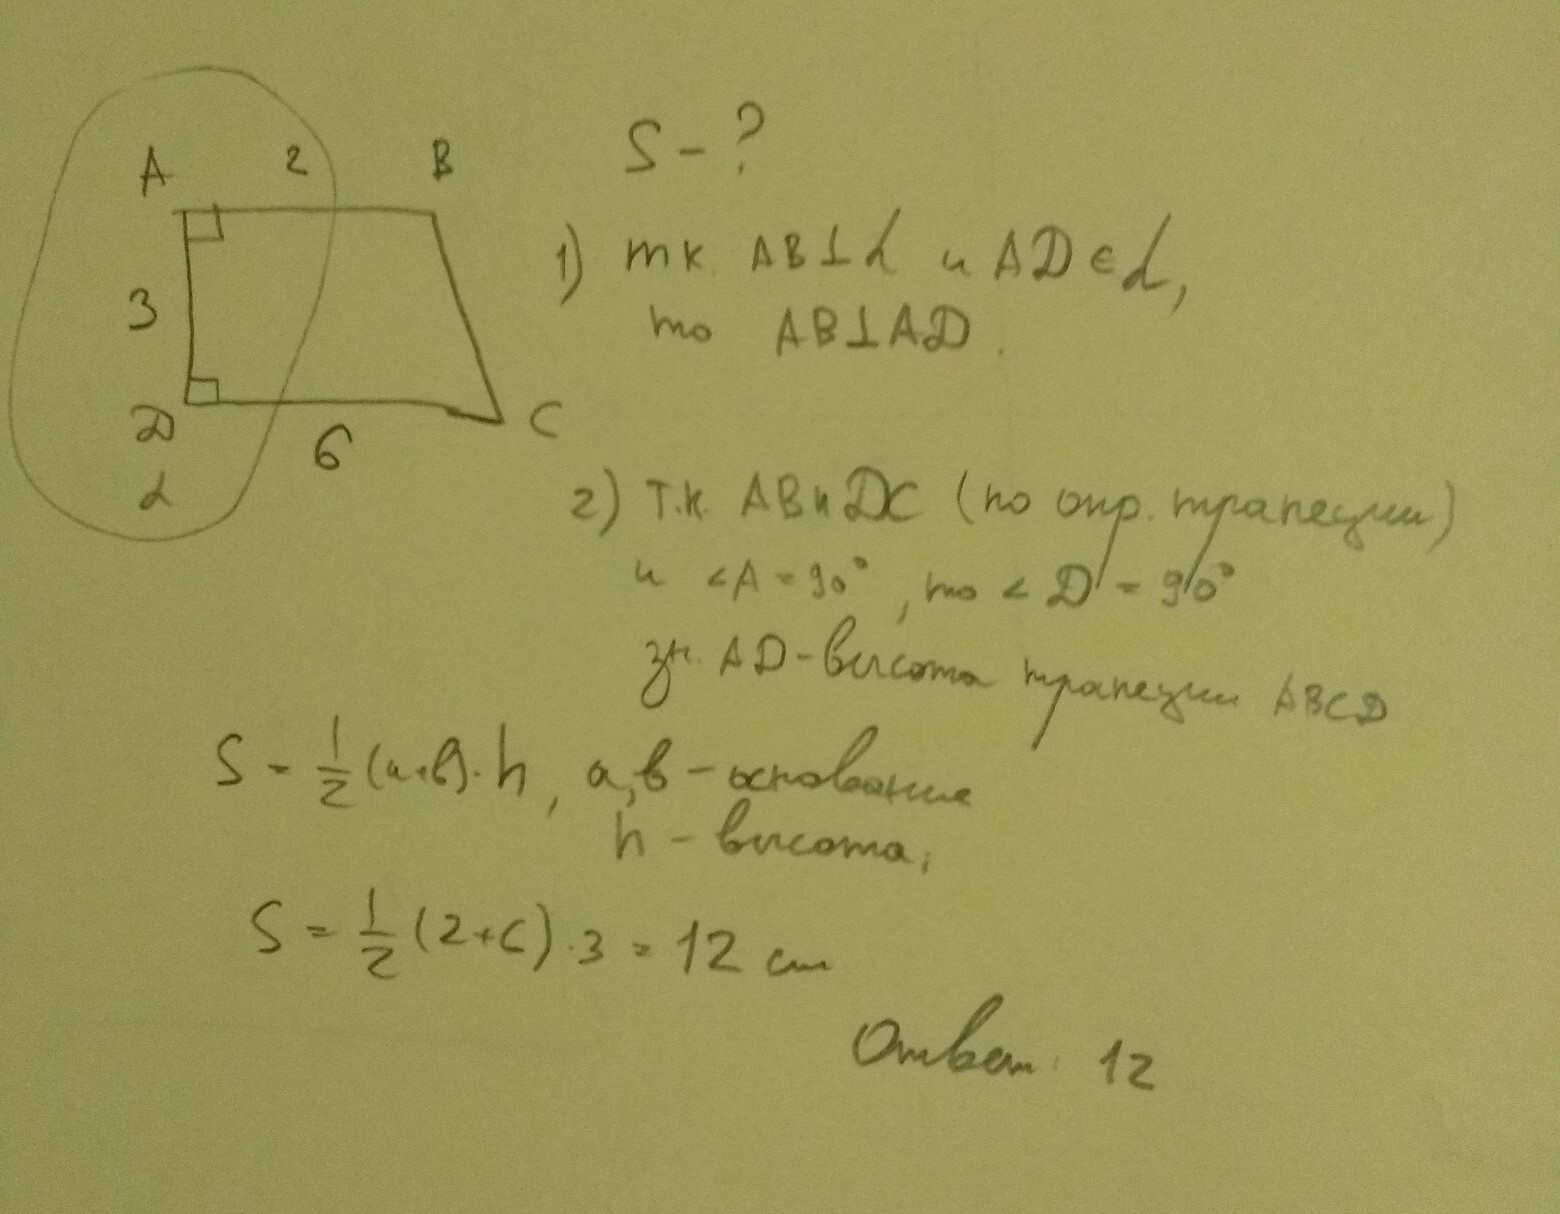 A 2 B
3
D 6 C
α
S - ?
1) т к. AB⊥α и AD∈α,
то AB⊥AD.
2) т.к. AB и DC (по опр. трапеции)
и <A = 90°, то <D = 90°
зн. AD - высота трапеции ABCD
S = 1/2 (a+b)·h, a,b - основание
h - высота;
S = 1/2 (2+6)·3 = 12 см
Ответ: 12